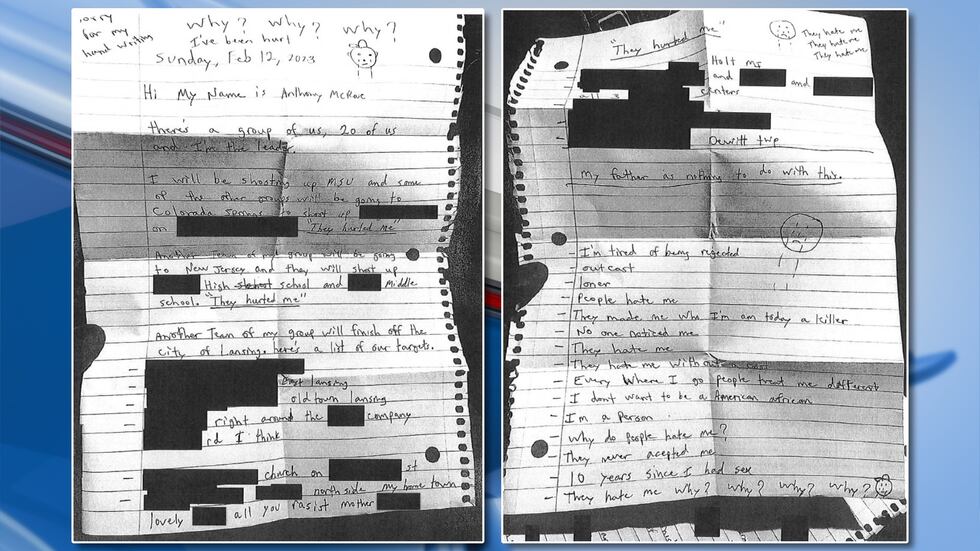 sorry
for my
hand writing
Why? Why? Why?
I've been hurt
Sunday, Feb 12, 2023
Hi My Name is Anthony McRae
there's a group of us, 20 of us
and I'm the leader.
I will be shooting up MSU and some
of the other groups will be going to
Colorada springs to shoot up
on "They hurted me"
Another Team of my group will be going
to New Jersey and they will shoot up
High school and Middle
school. "They hurted me"
Another Team of my group will finish off the
city of Lansing. here's a list of our targets.
East lansing
old town lansing
right around the company
rd I think
church on st
north side my home town
lovely all you rasist mother
"They hurted me"
They hate me
They hate me
They hate me
Holt MI
and and
centers
Dewitt twp
My father as nothing to do with this.
- I'm tired of being rejected
- outcast
- loner
- People hate me
- They made me who I'm am today a killer
- No one noticed me
- They hate me
- They hate me without a
- Every Where I go people treat me different
- I dont want to be a American african
- I'm a Person
- Why do people hate me?
- They never acepted me
- 10 years since I had sex
- They hate me why? why? why? why?